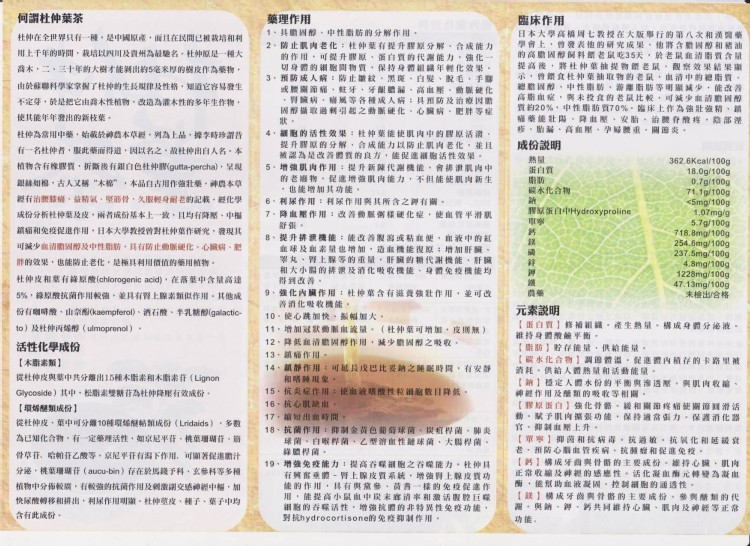 何謂杜仲葉茶
杜仲在全世界只有一種。是中國原產，而且在民間已被栽培和利
用上千年的時間，栽培以四川及貴州為最馳名。杜仲原是一種大
喬木，二、三十年的大樹才能剝出約5毫米厚的樹皮作為藥物，
由於蘇聯科學家掌握了杜仲的生長規律及性格，知道它容易發生
不定芽，於是把它由喬木性植物，改造為灌木性的多年生作物，
使其能年年發出的新枝葉。
杜仲為常用中藥，始載於神農本草經，列為上品，據李時珍謂昔
有一名杜仲者，服此藥而得道，因以名之，故杜仲出自人名，本
植物含有橡膠質，折斷後有銀白色杜仲膠(gutta-percha)，呈現
銀絲如棉，古人又稱"木棉"，本品自古用作強壯藥，神農本草
經有治腰膝痛，益精氣，堅筋骨，久服輕身耐老的記載。經化學
成份分析杜仲葉及皮，兩者成份基本上一致，且均有降壓、中樞
鎮痛和免疫促進作用，日本大學教授曾對杜仲作研究，發現其
可減少血清膽固醇及中性脂肪，具有防止動脈硬化、心臟病、肥
胖的效果，也能防止老化，是極具利用價值的藥用植物。
杜仲皮和葉有綠原酸(chlorogenic acid)，在落葉中含量高達
5%，綠原酸抗菌作用較強，並具有腎上腺素類似作用。其他成
份有咖啡酸、山奈酚(kaempferol)、酒石酸、半乳糖醇(galactic-
to）及杜仲丙烯醇（ulmoprenol）。
活性化學成份
【木脂素類】
從杜仲皮與葉中共分離出15種木脂素和木脂素苷（Lignon
Glycoside）其中，松脂素雙糖苷為杜仲降壓有效成份。
【環烯醚類成份】
從杜仲皮、葉中可分離10種環烯醚帖類成份（Lridaids），多數
為已知化合物，有一定藥理活性，如京尼平苷、桃葉珊瑚苷、筋
骨草苷、哈帕苷乙酸等。京尼平苷有瀉下作用、可顯著促進膽汁
分泌，桃葉珊瑚苷（aucu-bin）存在於馬錢子科、玄參科等多種
植物中分佈較廣，有較強的抗菌作用及刺激副交感神經中樞，加
快尿酸轉移和排出，利尿作用明顯。杜仲莖皮、種子、葉子中均
含有此成份。
藥理作用
1、具膽固醇、中性脂肪的分解作用。
2、防止肌肉老化：杜仲葉有提升膠原分解、合成能力
的作用，可提升膠原、蛋白質的代謝能力，強化一
切身體的細胞間物質，保持身體組織年輕化效果。
3、預防成人病：防止皺紋、黑斑、白髮、脫毛、手腳
或腰關節痛、蛀牙、牙齦膿漏、高血壓、動脈硬化
、腎臟病、痛風等各種成人病；具預防及治療因膽
固醇攝取過剩引起之動脈硬化、心臟病、肥胖等症
狀。
4、細胞的活性效果：杜仲葉能使肌肉中的膠原活潑，
提升膠原的合成能力以防止肌肉老化，並且
被認為是改善體質的良方，能促進細胞活性效果。
5、增強肌肉作用：提升新陳代謝機能，會排泄肌肉中
的老廢物，促進增強肌肉能力，不但能使肌肉新生
，也能增加其功能。
6、利尿作用：利尿作用與其所含之鉀有關。
7、降血壓作用：改善動脈個樣硬化症，使血管平滑肌
舒張。
8、提升排泄機能：能改善腹瀉或粘血便，血液中的紅
血球及血素量也增加，造血機能復原；增加肝臟、
睪丸、腎上腺等的重量，肝臟的糖代謝機能、肝臟
和大小腸的排泄及消化吸收機能、身體免疫機能均
得到改善。
9、強化內臟作用：杜仲葉含有滋養強壯作用，並可改
善消化吸收機能。
10、使心跳加快、振幅加大。
11、增加冠狀動脈血流量。（杜仲葉可增加、皮則無）
12、降低血清膽固醇作用，減少膽固醇之吸收。
13、鎮痛作用。
14、鎮靜作用：可延長戊巴比妥鈉之睡眠時間，有安靜
和嗜睡現象。
15、抗炎症作用：使血液嗜酸性粒細胞數目降低。
16、抗心肌缺血。
17、縮短出血時間。
18、抗菌作用：抑制金黃色葡萄球菌、炭疽桿菌、肺炎
球菌、白喉桿菌、乙型溶血性鏈球菌、大腸桿菌、
綠膿桿菌。
19、增強免疫能力：提高吞噬細胞之吞噬能力，杜仲具
有興奮垂體、腎上腺皮質系統，增強腎上腺皮質功
能的作用，具有與黨參、黃耆一樣的免疫促進作
用，能提高小鼠血中炭末廓清率和激活腹腔巨噬
細胞的吞噬活性，增強抗體的非特異性免疫功能，
對抗hydrocortisone的免疫抑制作用。
臨床作用
日本大學高橋周七教授在大阪舉行的第八次和漢醫藥
學會上，曾發表他的研究成果，他將含膽固醇和豬油
的高膽固醇飼料餵老鼠吃35天，於老鼠血清脂質含量
提高後，將杜仲葉抽提物餵老鼠，觀察效果結果顯
示，曾餵食杜仲葉抽取物的老鼠，血清中的總脂質、
總膽固醇、中性脂肪、游離脂肪等明顯減少，能改善
高脂血症，與未授食的老鼠比較，可減少血清膽固醇
質約20%，中性脂肪質70%。臨床上作為強壯強精、鎮
痛藥能壯陽、降血壓、安胎、治腰脊酸疼、陰部溼
疹、胎漏、高血壓、孕婦腰重、關節炎。
成份說明
熱量 362.6Kcal/100g
蛋白質 18.0g/100g
脂肪 0.7g/100g
碳水化合物 71.1g/100g
鈉 <5mg/100g
膠原蛋白中Hydroxyproline 1.07mg/g
單寧 5.7g/100g
鈣 718.8mg/100g
鎂 254.6mg/100g
磷 237.5mg/100g
鋅 4.8mg/100g
鉀 1228mg/100g
鐵 47.13mg/100g
農藥 未檢出/合格
元素說明
【蛋白質】修補組織，產生熱量，構成身體分泌液，
維持身體酸鹼平衡。
【脂肪】貯存能量、供給能量。
【碳水化合物】調節體溫，促進體內積存的卡路里被
消耗、供給人體熱量和活動能量。
【鈉】穩定人體水份的平衡與滲透壓，與肌肉收縮、
神經作用及醣類的吸收等相關。
【膠原蛋白】強化骨骼、緩和關節疼痛使關節圓滑活
動，賦予肌肉擴張功能、保持適當張力、保護消化器
官、抑制血壓上升。
【單寧】抑菌和抗病毒、抗過敏、抗氧化和延緩衰
老、預防心腦血管疾病、抗腫瘤和促進免疫。
【鈣】構成牙齒與骨骼的主要成份、維持心臟、肌肉
正常收縮及神經的感應性，活化凝血酶元轉變為凝血
酶，能幫助血液凝固，控制細胞的通透性。
【鎂】構成牙齒與骨骼的主要成份，參與醣類的代
謝，與鈉、鉀、鈣共同維持心臟、肌肉及神經等正常
功能。